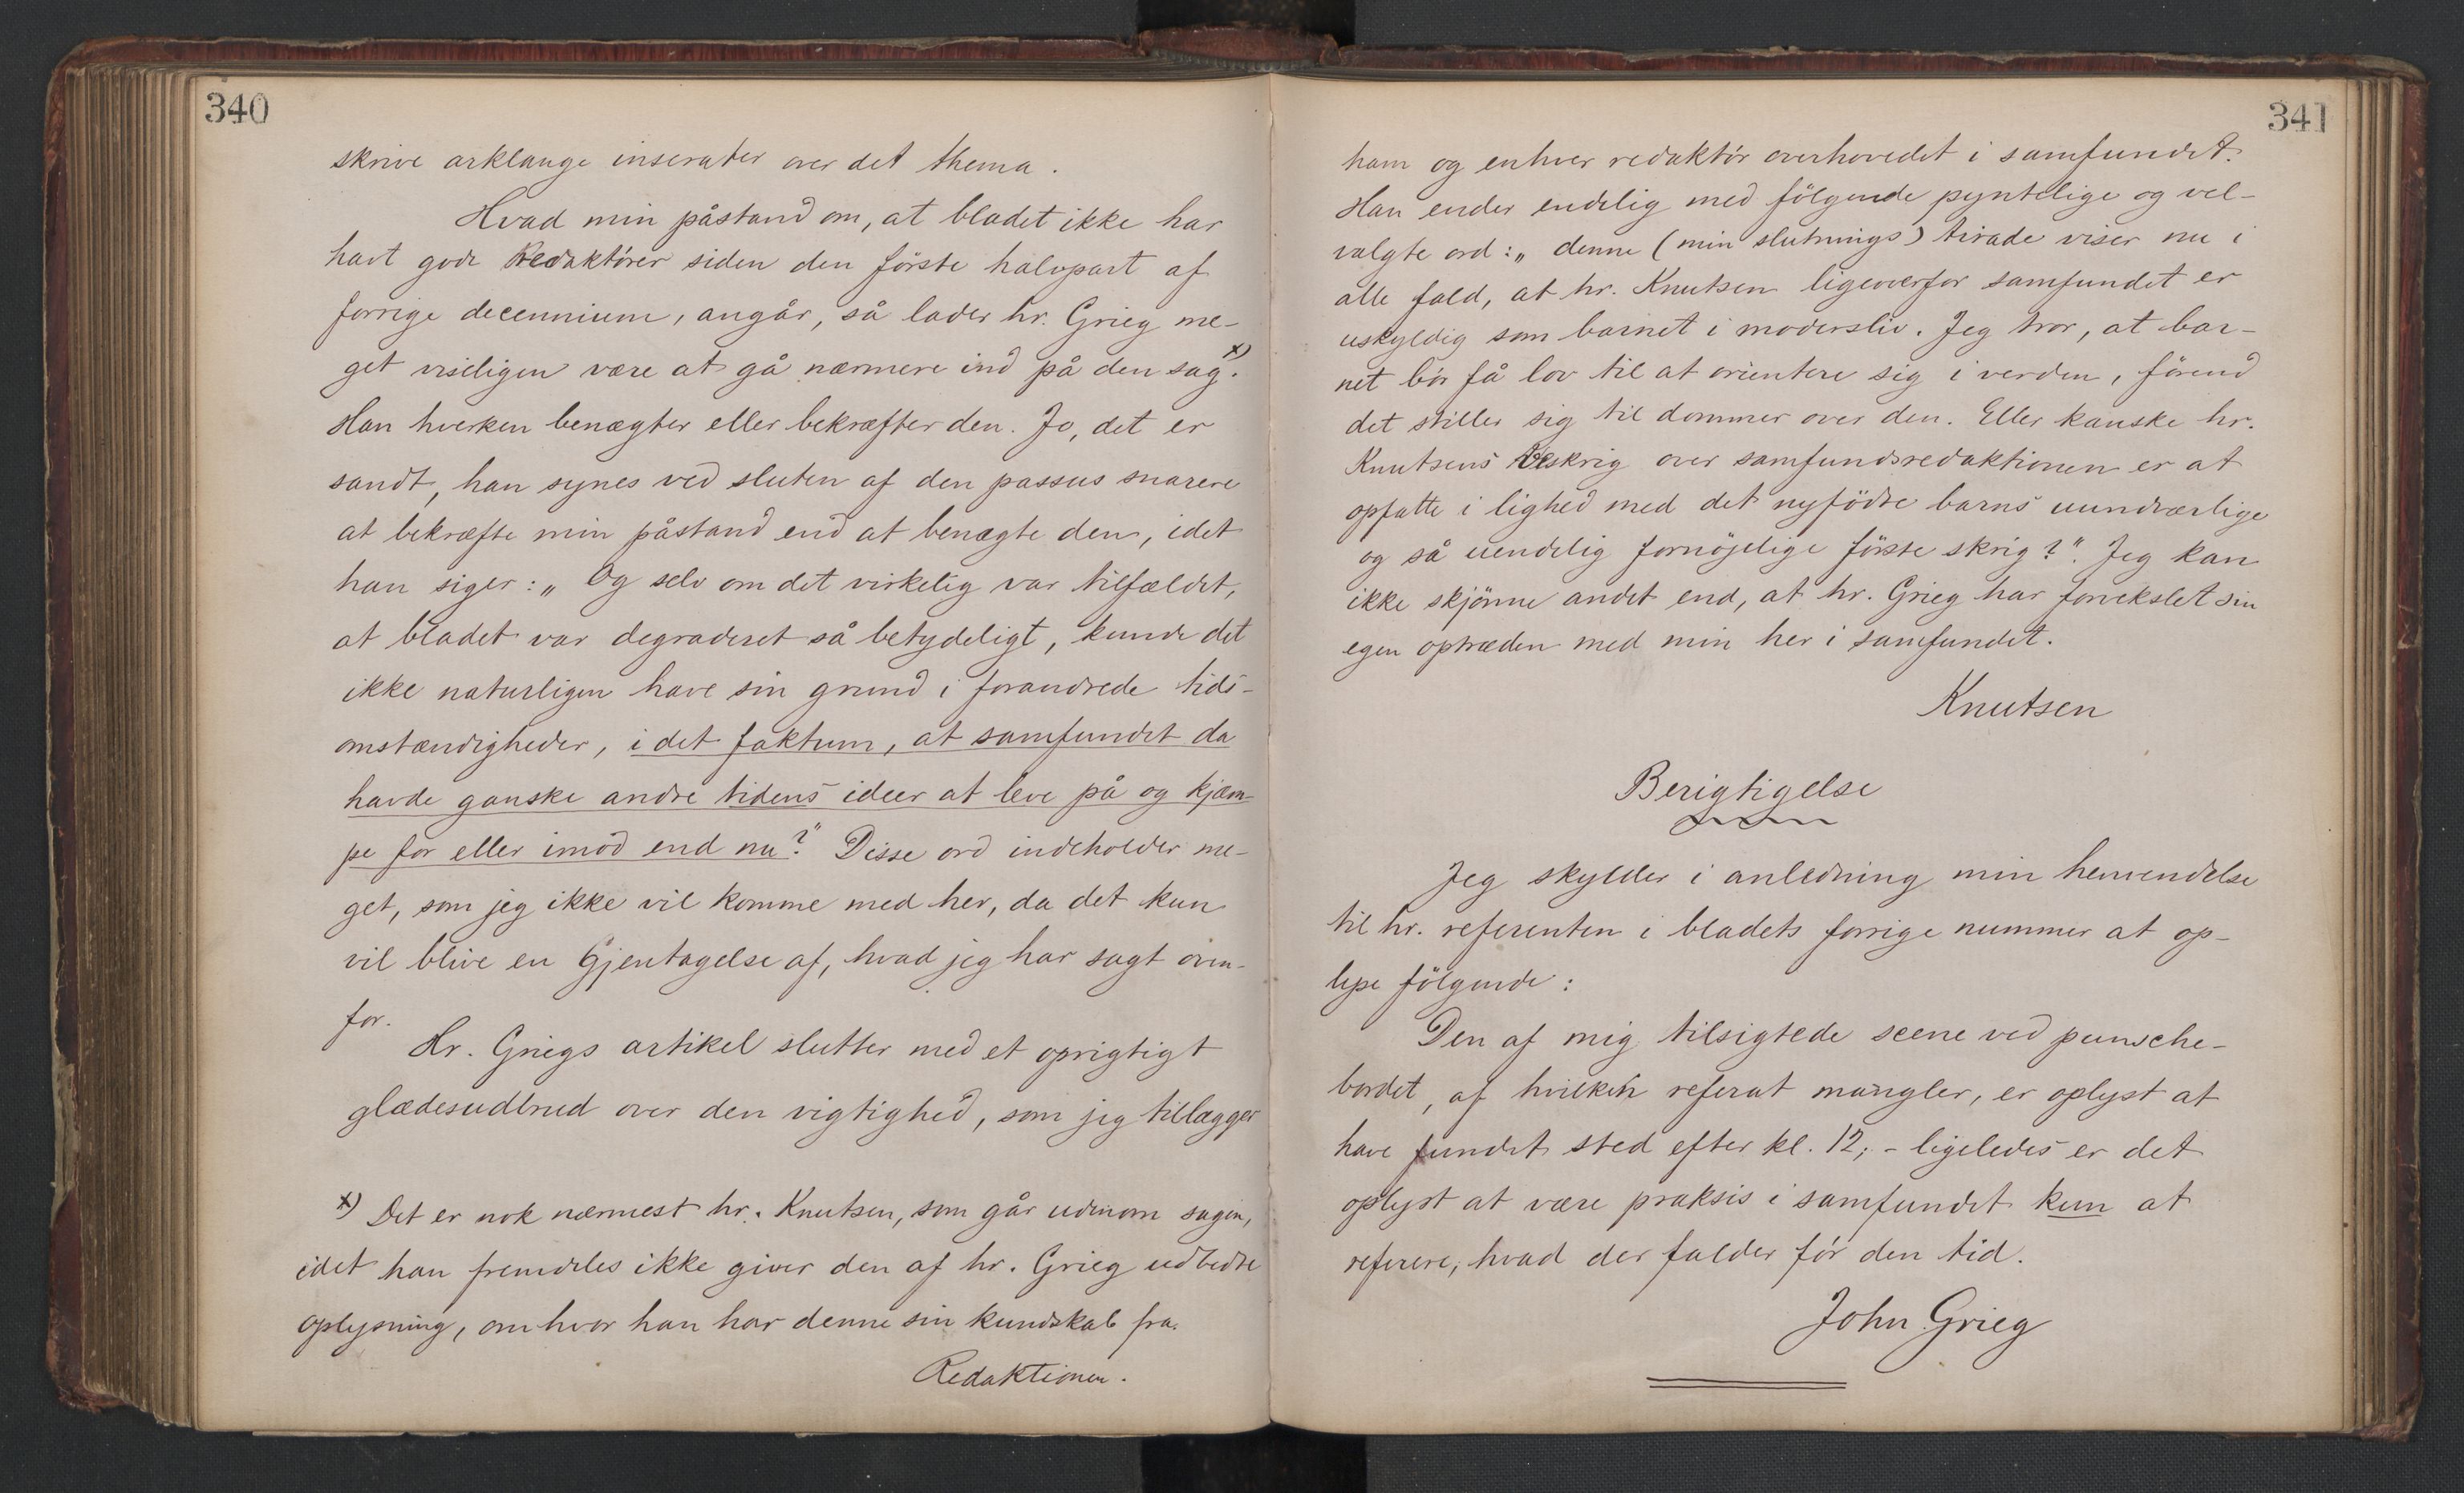 340
skrive arklange inserater over det thema.
Hvad min påstand om, at bladet ikke har
havt gode Redaktører siden den første halvpart af
forrige decennium, angår, så lader hr. Grieg me-
get viseligen være at gå nærmere ind på den sag. x)
Han hverken benægter eller bekræfter den. Jo, det er
sandt, han synes ved sluten af den passus snarere
at bekræfte min påstand end at benægte den, idet
han siger: „Og selv om det virkelig var tilfældet,
at bladet var degraderet så betydeligt, kunde det
ikke naturligen have sin grund i forandrede tids-
omstændigheder, i det faktum, at samfundet da
havde ganske andre tidens ideer at leve på og kjæm-
pe for eller imod end nu?" Disse ord indeholder me-
get, som jeg ikke vil komme med her, da det kun
vil blive en Gjentagelse af, hvad jeg har sagt oven-
for.
Hr. Griegs artikel slutter med et oprigtigt
glædesudbrud over den vigtighed, som jeg tillægger
x) Det er nok nærmest hr. Knutsen, som går udenom sagen,
idet han fremdeles ikke giver den af hr. Grieg udbedte
oplysning, om hvor han har denne sin kundskab fra.
Redaktionen.
341
ham og enhver redaktør overhovedet i samfundet.
Han ender endelig med følgende pyntelige og vel-
valgte ord: „denne (min slutnings) tirade viser nu i
alle fald, at hr. Knutsen ligeoverfor samfundet er
uskyldig som barnet i modersliv. Jeg tror, at bar-
net bør få lov til at orientere sig i verden, førend
det stiller sig til dommer over den. Eller kanske hr.
Knutsens Veskrig over samfundsredaktionen er at
opfatte i lighed med det nyfødte barns uundværlige
og så uendelig fornøjelige første skrig?". Jeg kan
ikke skjønne andet end, at hr. Grieg har forvekslet sin
egen optræden med min her i samfundet.
Knutsen
Berigtigelse
Jeg skylder i anledning min henvendelse
til hr. referenten i bladets forrige nummer at op-
lyse følgende:
Den af mig tilsigtede scene ved punsche-
bordet, af hvilken referat mangler, er oplyst at
have fundet sted efter kl. 12; - ligeledes er det
oplyst at være praksis i samfundet kun at
referere, hvad der falder før den tid.
John Grieg